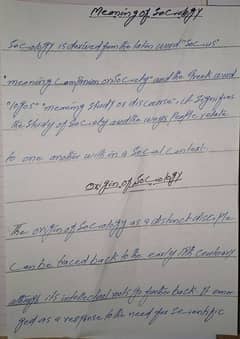 Meaning of Sociology
Sociology is derived from the laten word "Socius"
"meaning companion on Society" and the Greek word
"logos" "meaning study or discourse". it Signifies
the Study of Society and the ways People relate
to one another with in a Social context.
Origin of Sociology
The origin of Sociology as a distinct disciple
can be traced back to the early 19th century
its intellectual roots go further back. It emer
ged as a response to the need for Scientific